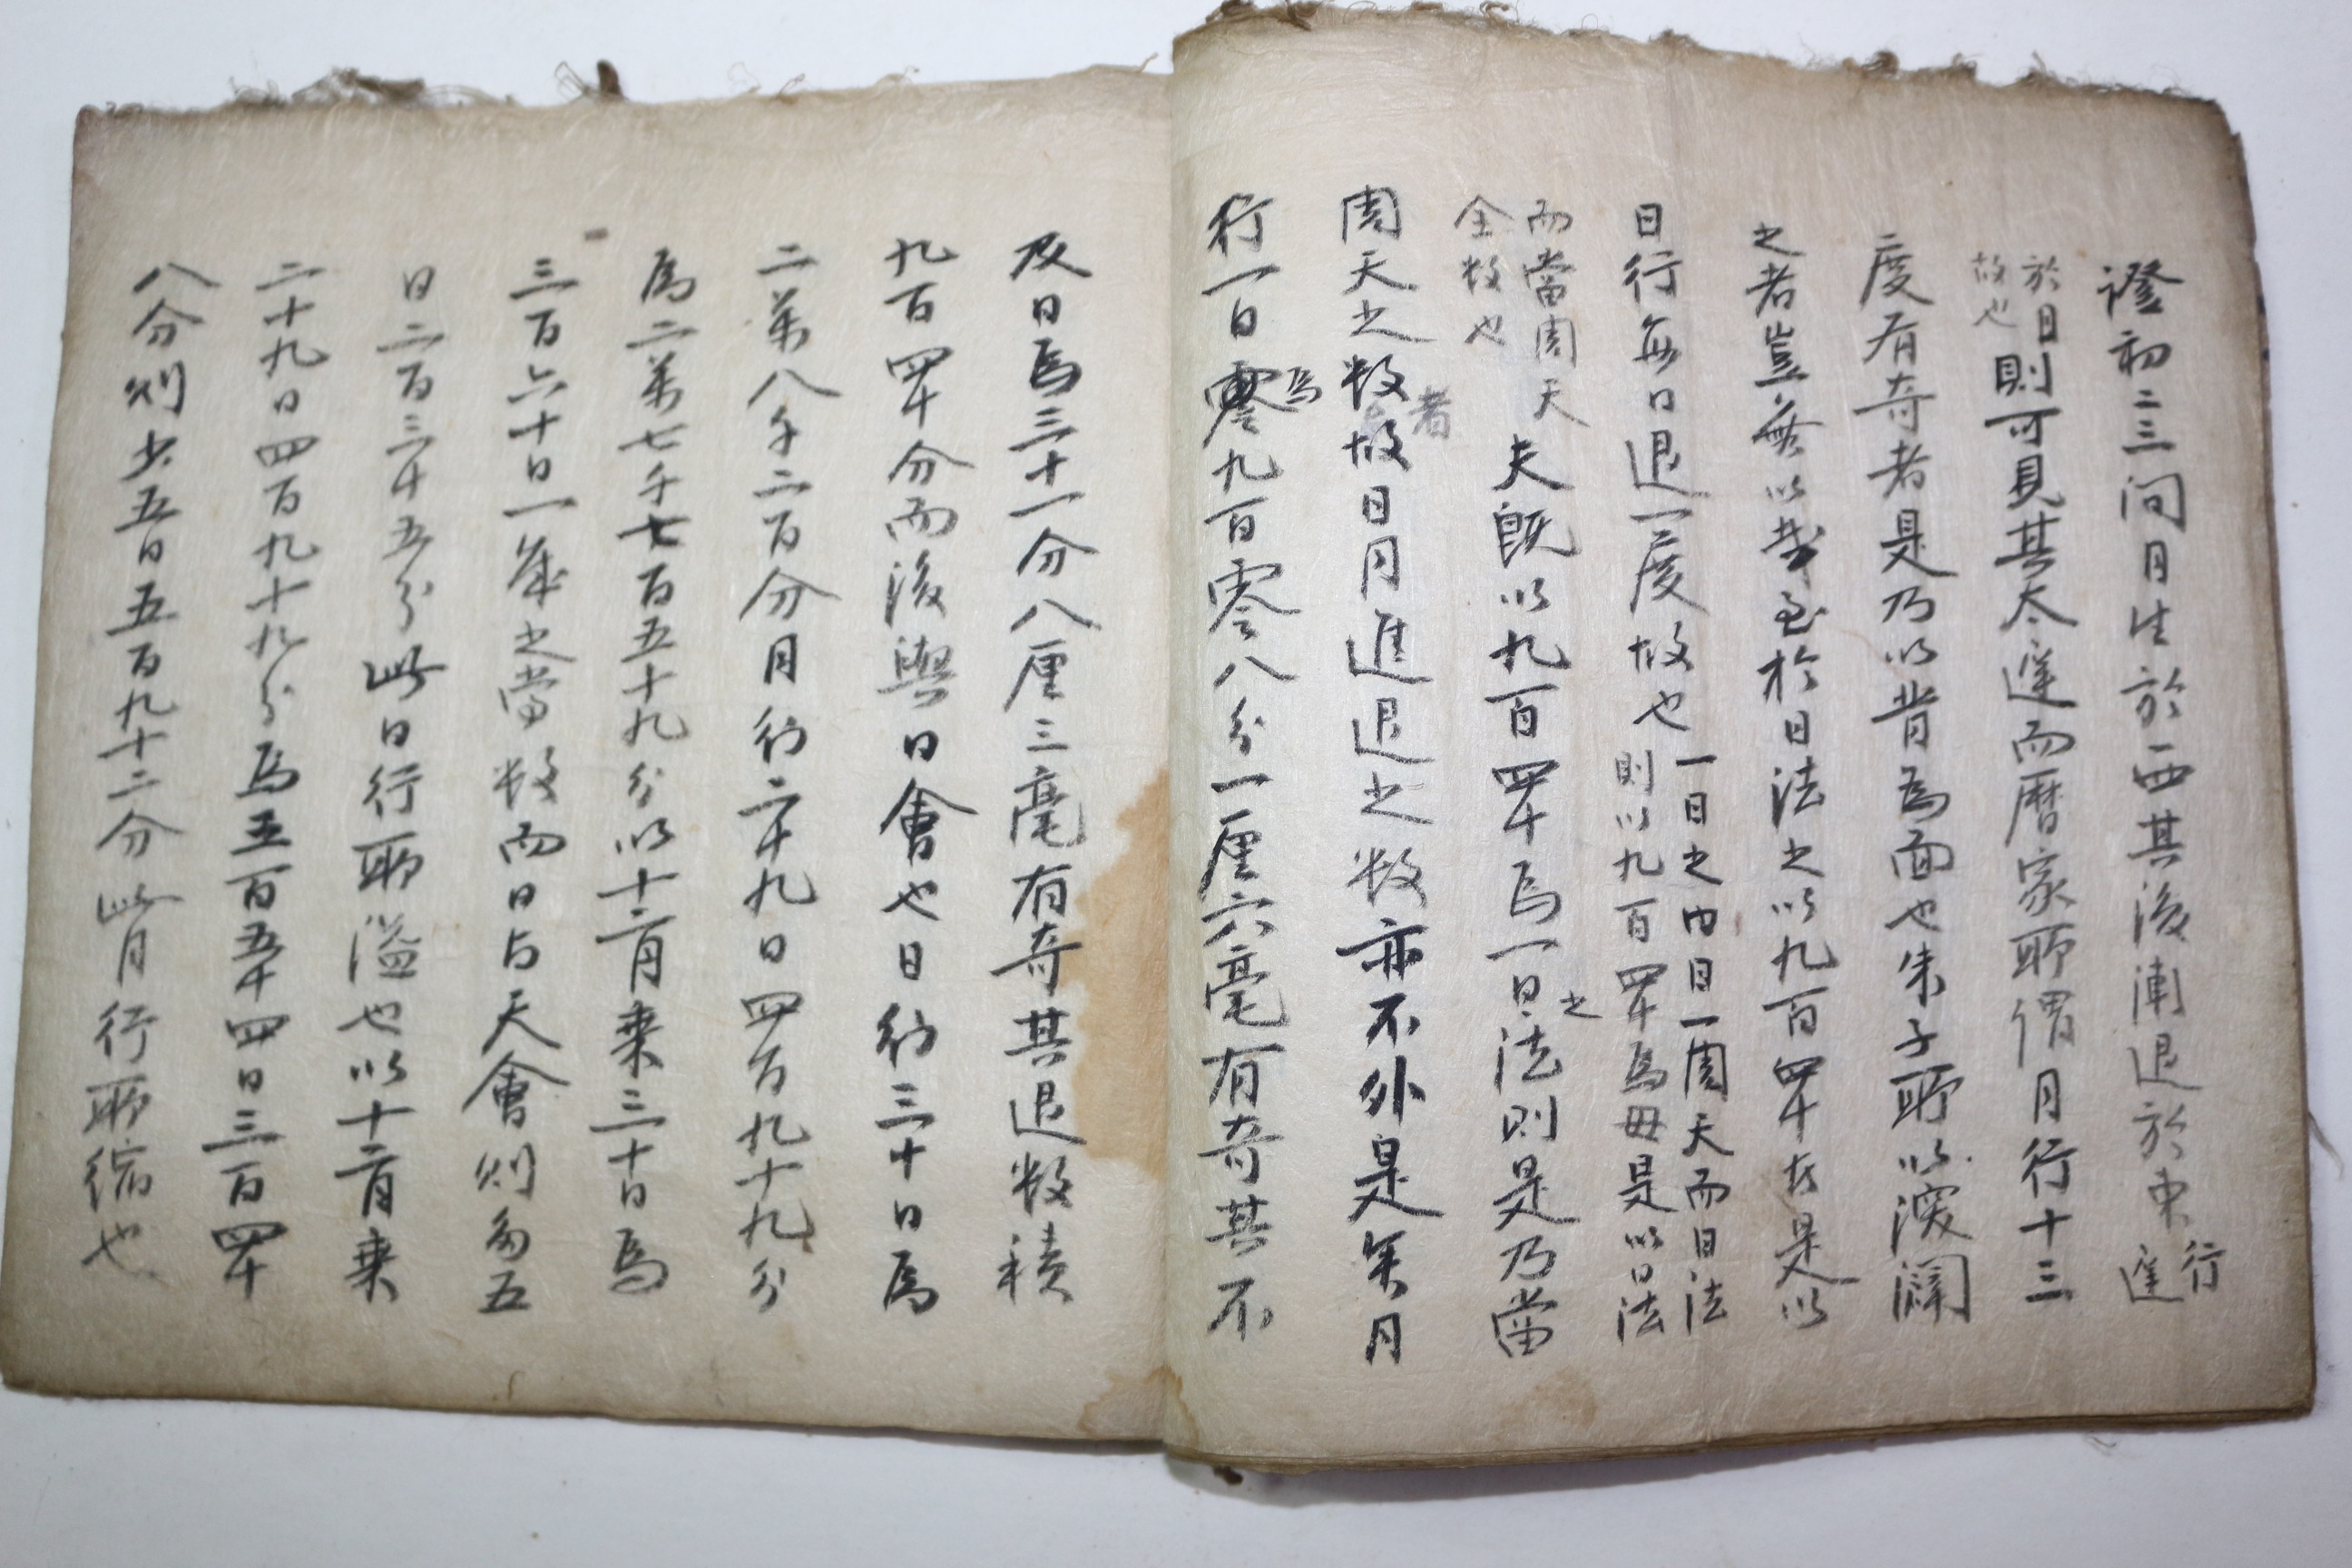 證初二三間月生於西其後漸退於東行遲
於日
故也
則可見其太遲而曆家所謂月行十三
度有奇者是乃以背爲面也朱子所以深闢
之者豈無以哉至於日法之以九百四十者是以
日行每日退一度故也
一日之內日一周天而日法
則以九百四十爲母是以日法
而當周天
全數也
夫旣以九百四十爲一日之法則是乃當
周天之數者故日月進退之數亦不外是矣月
行一日零爲九百零八分一厘六毫有奇其不
及日爲三十一分八厘三毫有奇其退數積
九百四十分而後與日會也日行三十日爲
二萬八千二百分月行二十九日四百九十九分
爲二萬七千七百五十九分以十二月乘三十日爲
三百六十日一歲之當數而日与天會則多五
日二百三十五分此日行所溢也以十二月乘
二十九日四百九十九分爲三百五十四日三百四十
八分則少五日五百九十二分此月行所縮也